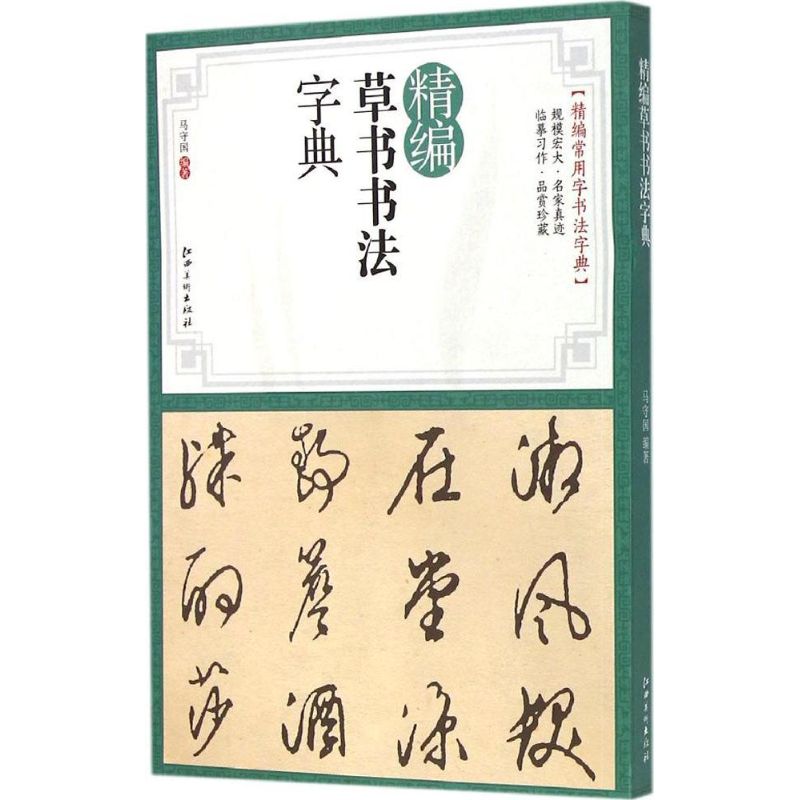 【精编常用字书法字典】
规模宏大·名家真迹
临摹习作·品赏珍藏
精编
草书书法
字典
马守国 编著
江西美术出版社
风
在堂
莎
精编草书书法字典
马守国 编著
江西美术出版社